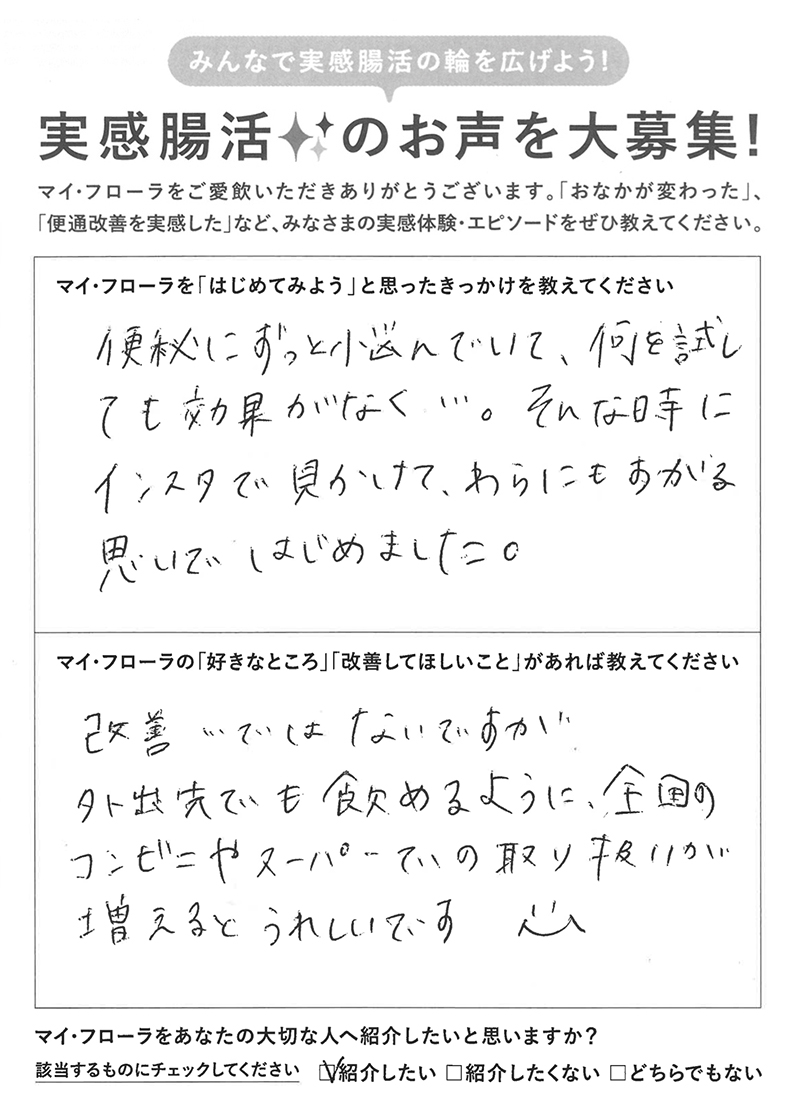 みんなで実感腸活の輪を広げよう!
実感腸活のお声を大募集!
マイ・フローラをご愛飲いただきありがとうございます。「おなかが変わった」、
「便通改善を実感した」など、みなさまの実感体験・エピソードをぜひ教えてください。
マイ・フローラを「はじめてみよう」と思ったきっかけを教えてください
便秘にずっと小悩んでいて、何を試し
ても効果がなく…。そんな時に
インスタで見かけて、わらにもすがる
思いではじめました。
マイ・フローラの「好きなところ」「改善してほしいこと」があれば教えてください
改善…ではないですが
外出先でも飲めるように、全国の
コンビニやスーパーでの取り扱いが
増えるとうれしいです
マイ・フローラをあなたの大切な人へ紹介したいと思いますか?
該当するものにチェックしてください ☑紹介したい □紹介したくない □どちらでもない